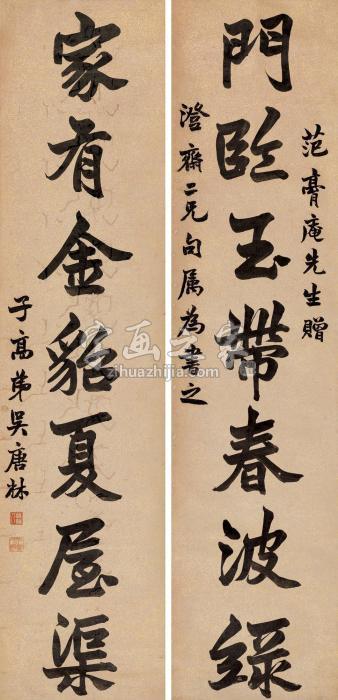 范膏庵先生贈
門臨玉帶春波綠
澄齋二兄句属為書之
家有金貂夏屋渠
子高弟吳唐林
字画之家
zihuazhijia.com